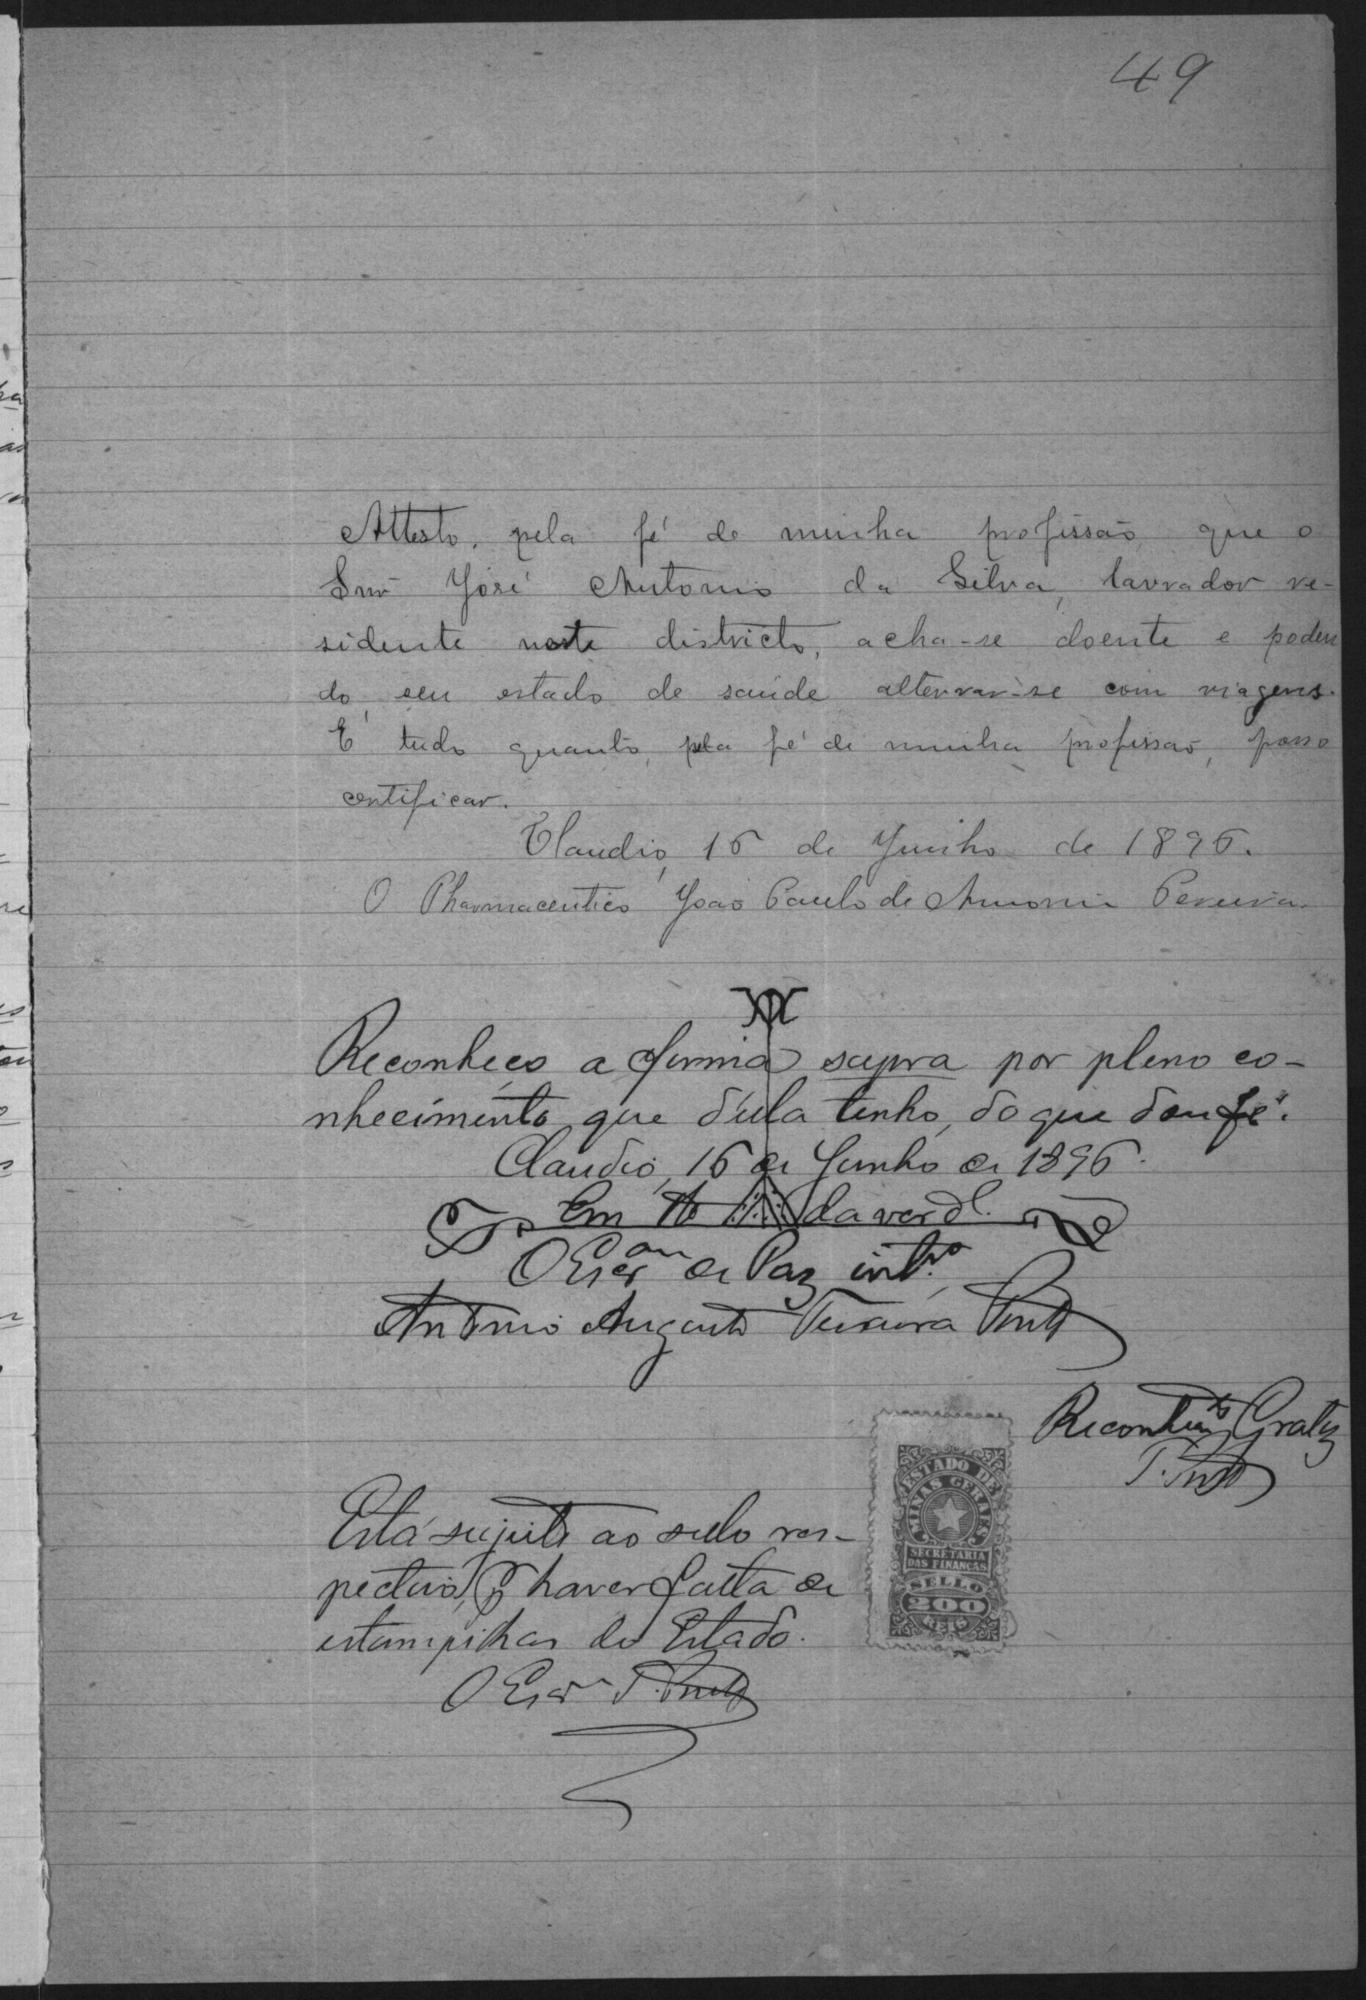 49
Attesto, pela fé de minha profissão, que o
Snr José Antonio da Silva, lavrador re-
sidente neste districto, acha-se doente e poden
do seu estado de saúde alterrar-se com viagens.
É tudo quanto, pela fé de minha profissão, posso
certificar.
Claudio, 16 de Junho de 1896.
O Pharmaceutico João Paulo de Amorim Pereira.
Reconheço a firma supra por pleno co-
nhecimento que d'ella tenho, do que dou fé.
Claudio, 16 de Junho de 1896.
Em da verd.e
O Escr.am de Paz int.o
Antonio Augusto Teixeira Pinto
Reconhecim.to Gratis
T. Pinto
ESTADO DE
MINAS GERAES
SECRETARIA
DAS FINANÇAS
SELLO
200
REIS
Está sujeito ao sello res-
pectivo, haver falta de
estampilhas do Estado.
O Escr.m T. Pinto